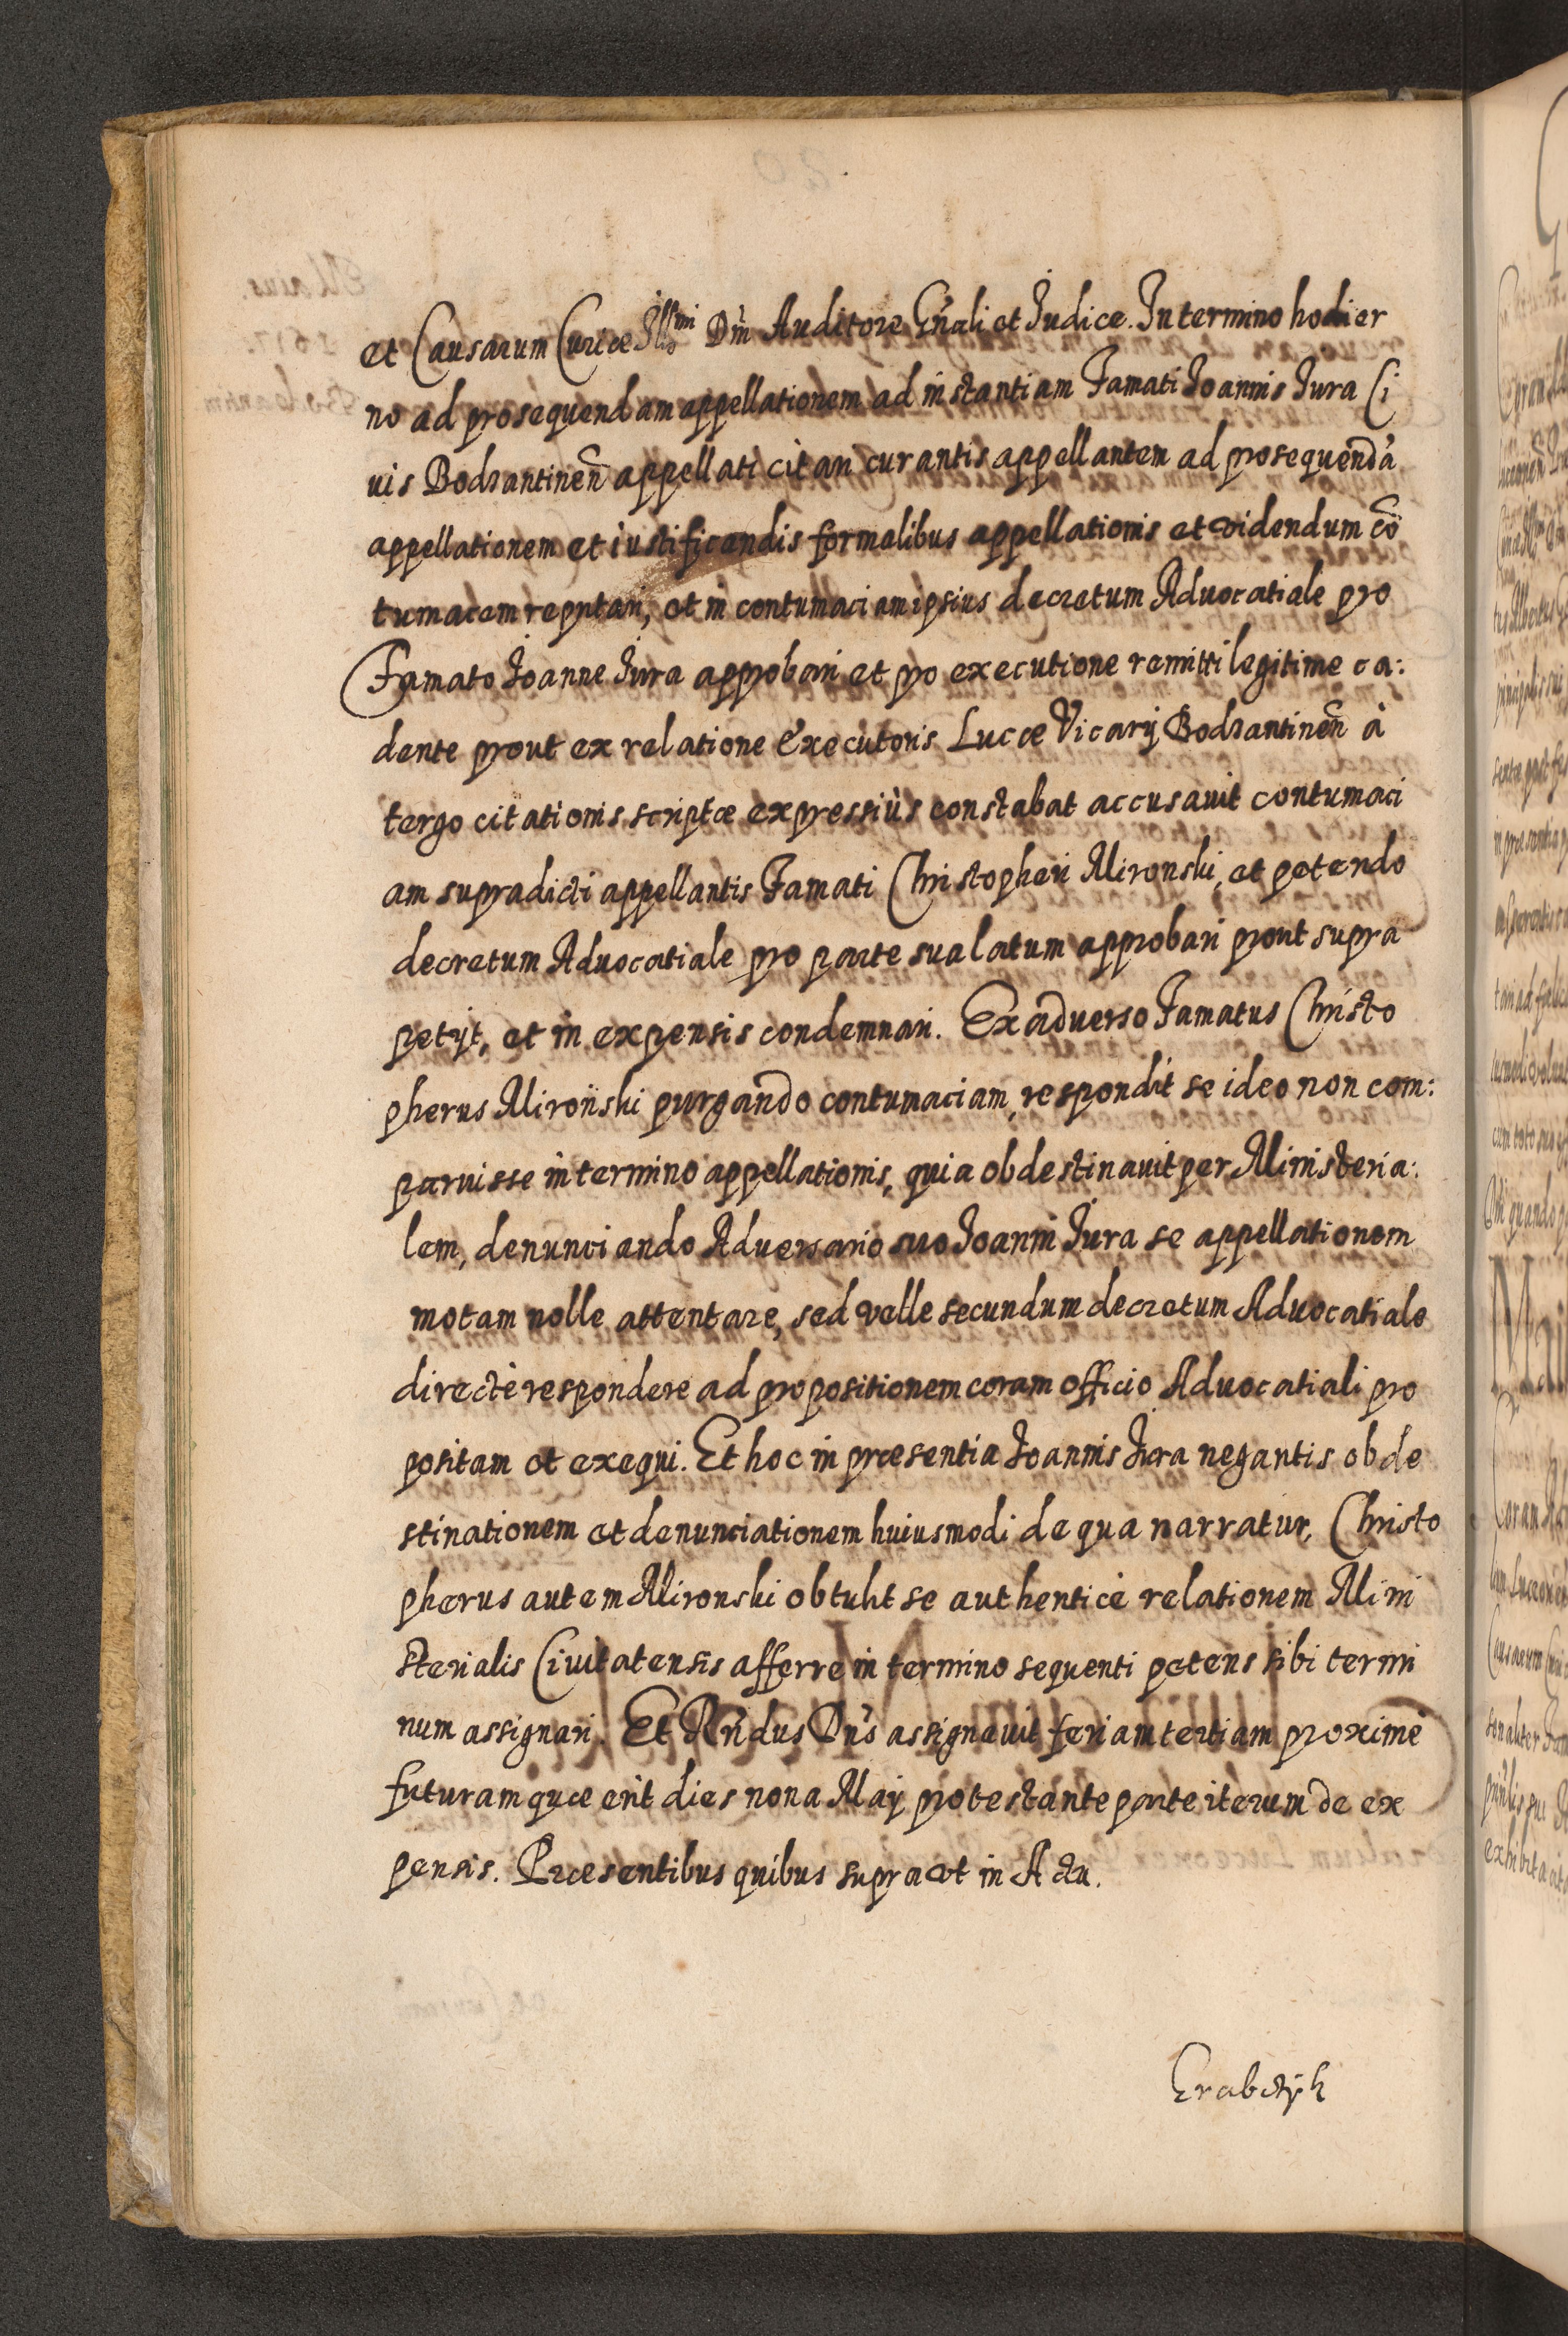 et Causarum Curiæ Ill[mi] Dni Auditore Gñali et Judice. In termino hodier
no ad prosequendam appellationem ad instantiam Famati Joannis Jura Ci
uis Bodzantineñ appellati citari curantis appellantem ad prosequendã
appellationem et iustificandis formalibus appellationis et videndum cõ
tumacem reputari, et in contumaciam ipsius decretum Aduocatiale pro
Famato Joanne Jura approbari et pro executione remitti legitime ca:
dente prout ex relatione Executoris Lucæ Vicarij Bodzantineñ à
tergo citationis scriptæ expressiùs constabat accusauit contumaci
am supradicti appellantis Famati Christopheri Mironski, et petendo
decretum Aduocatiale pro parte sua latum approbari prout supra
petijt, et in expensis condemnari. Ex aduerso Famatus Christo
pherus Mironski purgando contumaciam, respondit se ideo non com:
paruisse in termino appellationis, quia obdestinauit per Ministeria:
lem, denunciando Aduersario suo Joanni Jura se appellationem
motam nolle attentare, sed velle secundum decretum Aduocatiale
directè respondere ad propositionem coram officio Aduocatiali pro
positam et exequi. Et hoc in præsentia Joannis Jura negantis obde
stinationem et denunciationem huiusmodi de qua narratur, Christo
pherus autem Mironski obtulit se authenticè relationem Mini
sterialis Ciuitatensis afferre in termino sequenti petens sibi termi
num assignari. Et Rñdus Dñs assignauit feriam tertiam proximè
futuram quæ erit dies nona Maij protestante parte iterum de ex
pensis. Præsentibus quibus supra et in Acta.